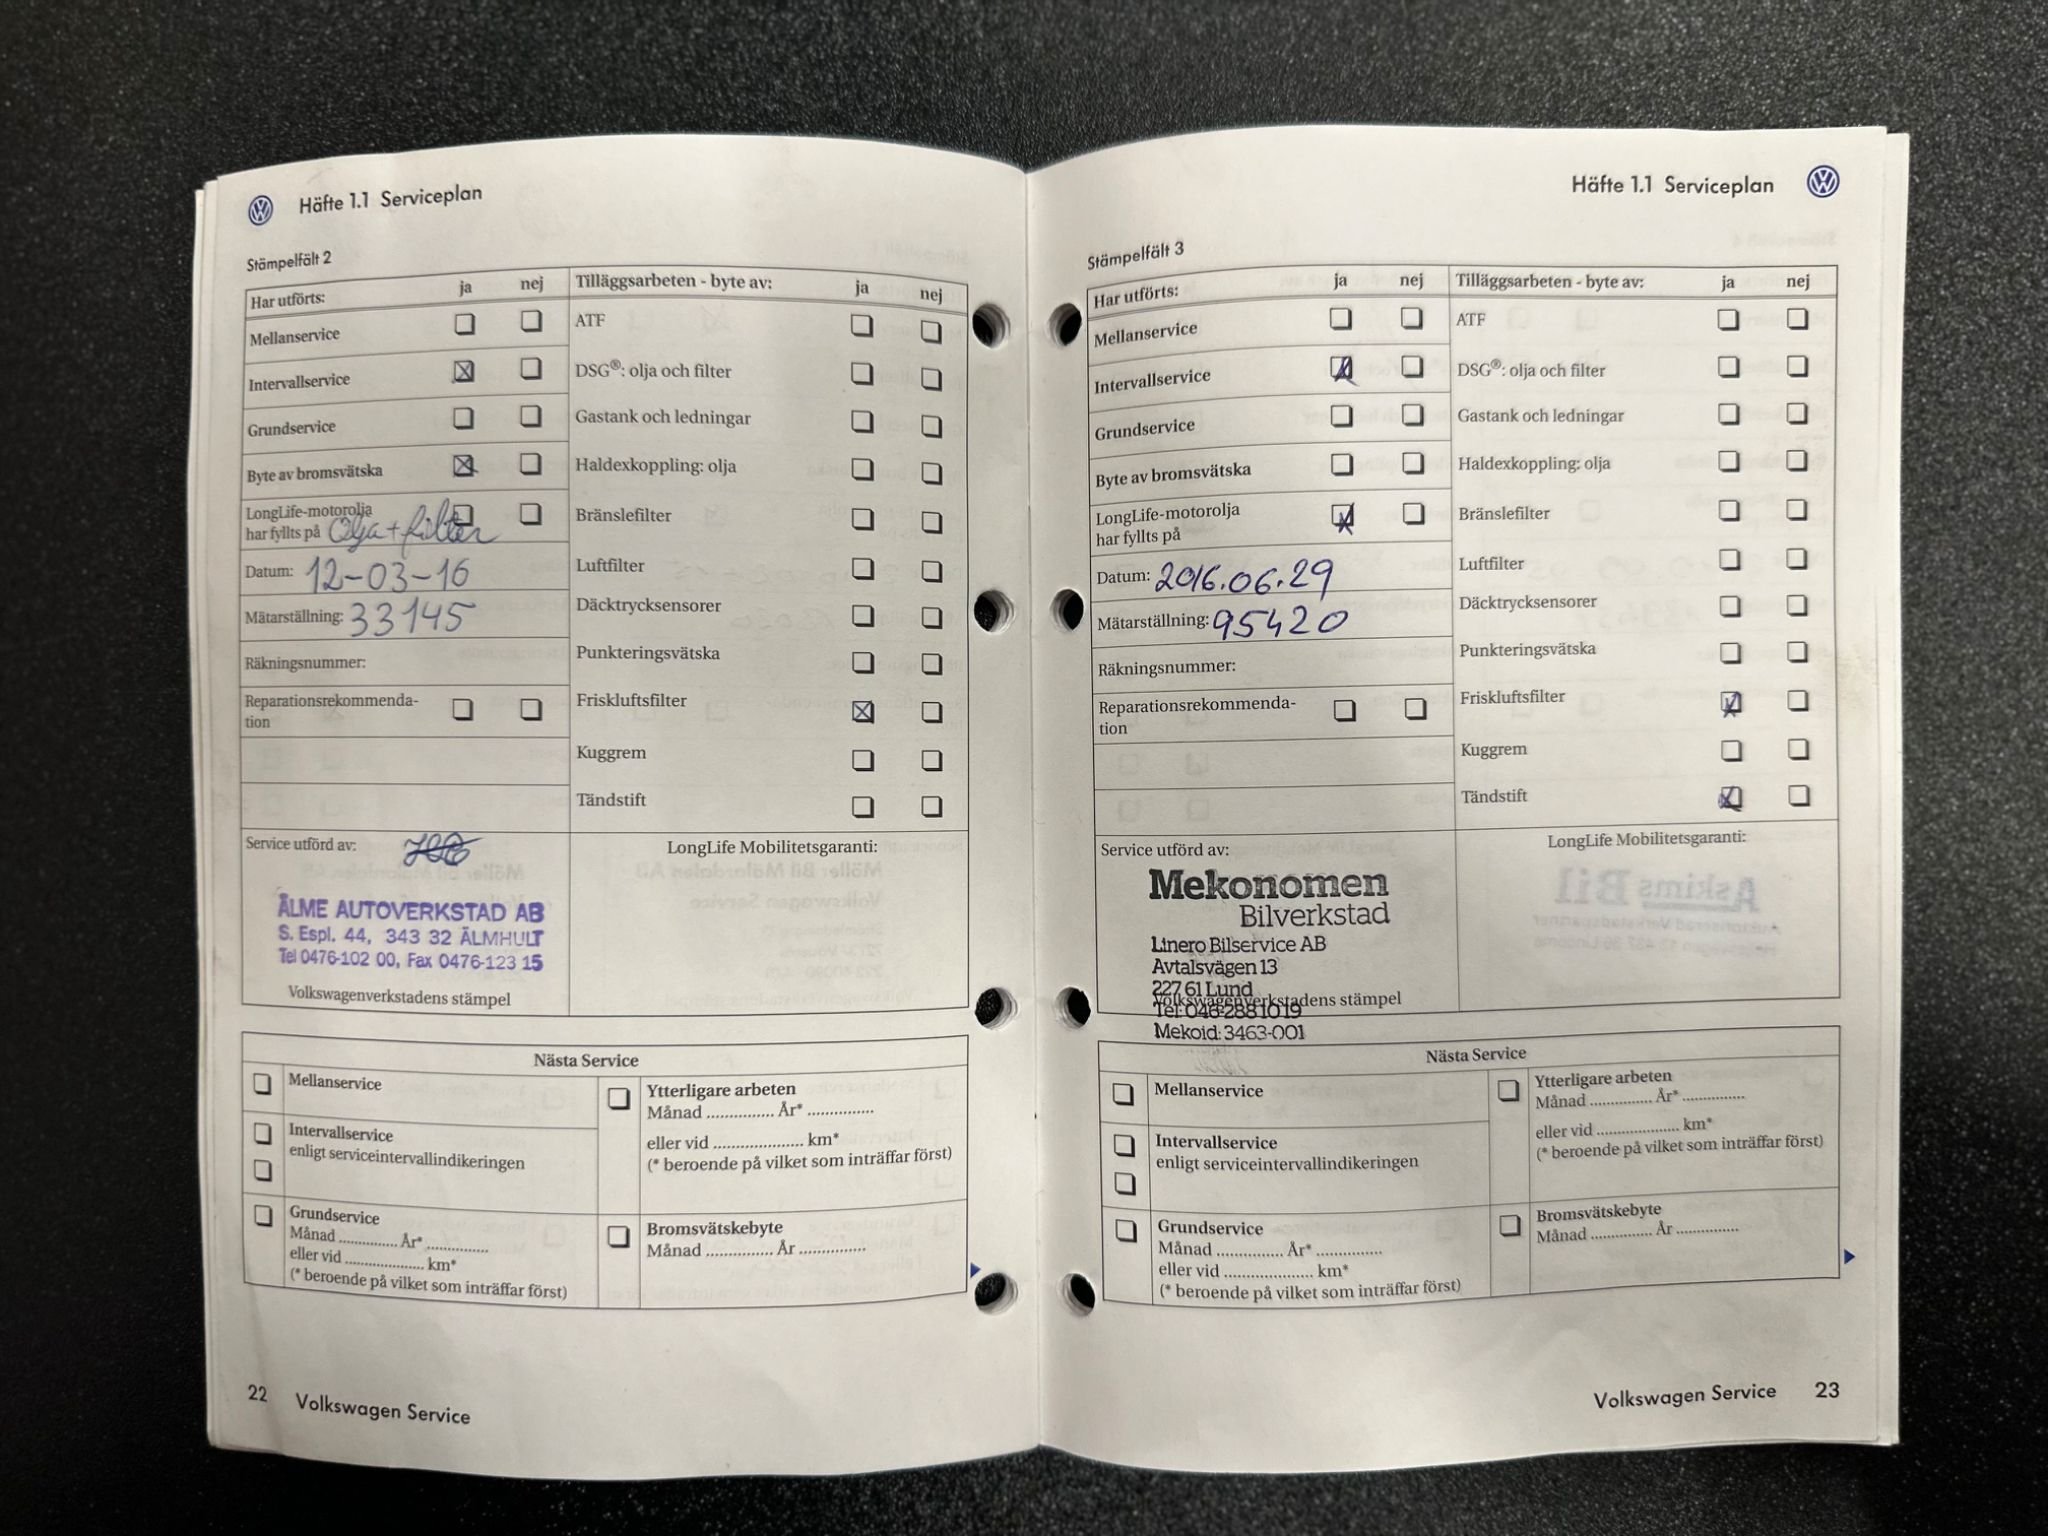 Häfte 1.1 Serviceplan
Stämpelfält 2
Har utförts: ja nej
Mellanservice
Intervallservice
Grundservice
Byte av bromsvätska
LongLife-motorolja
har fyllts på Olja + filter
Datum: 12-03-16
Mätarställning: 33145
Räkningsnummer:
Reparationsrekommenda-
tion
Tilläggsarbeten - byte av: ja nej
ATF
DSG®: olja och filter
Gastank och ledningar
Haldexkoppling: olja
Bränslefilter
Luftfilter
Däcktrycksensorer
Punkteringsvätska
Friskluftsfilter
Kuggrem
Tändstift
Service utförd av:
ÄLME AUTOVERKSTAD AB
S. Espl. 44, 343 32 ÄLMHULT
Tel 0476-102 00, Fax 0476-123 15
Volkswagenverkstadens stämpel
LongLife Mobilitetsgaranti:
Nästa Service
Mellanservice
Intervallservice
enligt serviceintervallindikeringen
Grundservice
Månad ............... År* ...............
eller vid .................... km*
(* beroende på vilket som inträffar först)
Ytterligare arbeten
Månad ............... År* ...............
eller vid .................... km*
(* beroende på vilket som inträffar först)
Bromsvätskebyte
Månad ............... År ...............
22 Volkswagen Service
Häfte 1.1 Serviceplan
Stämpelfält 3
Har utförts: ja nej
Mellanservice
Intervallservice
Grundservice
Byte av bromsvätska
LongLife-motorolja
har fyllts på
Datum: 2016.06.29
Mätarställning: 95420
Räkningsnummer:
Reparationsrekommenda-
tion
Tilläggsarbeten - byte av: ja nej
ATF
DSG®: olja och filter
Gastank och ledningar
Haldexkoppling: olja
Bränslefilter
Luftfilter
Däcktrycksensorer
Punkteringsvätska
Friskluftsfilter
Kuggrem
Tändstift
Service utförd av:
Mekonomen
Bilverkstad
Linero Bilservice AB
Avtalsvägen 13
227 61 Lund
Volkswagenverkstadens stämpel
Tel: 046-2881019
Mekoid: 3463-001
LongLife Mobilitetsgaranti:
Nästa Service
Mellanservice
Intervallservice
enligt serviceintervallindikeringen
Grundservice
Månad ............... År* ...............
eller vid .................... km*
(* beroende på vilket som inträffar först)
Ytterligare arbeten
Månad ............... År* ...............
eller vid .................... km*
(* beroende på vilket som inträffar först)
Bromsvätskebyte
Månad ............... År ...............
Volkswagen Service 23